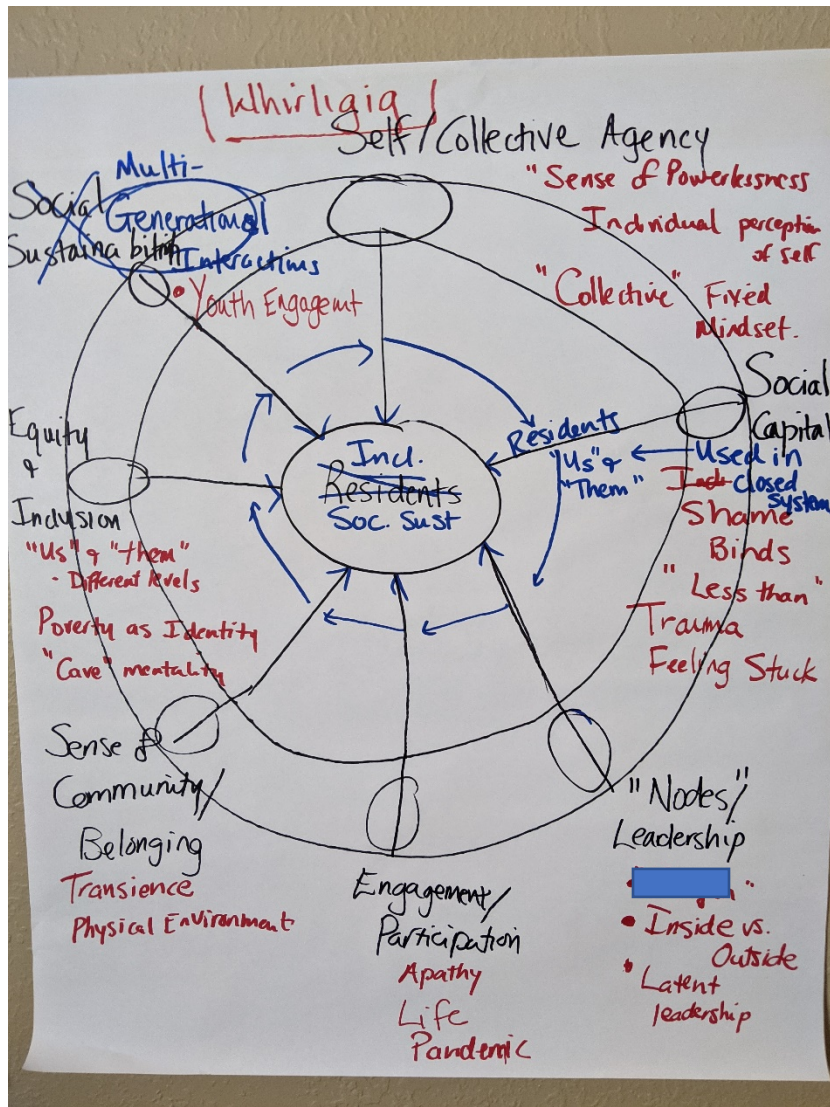 Whirligig
Self/Collective Agency
"Sense of Powerlessness
Individual perception
of self
"Collective" Fixed
Mindset.
Multi-
Generational
Interactions
Social
Sustainability
• Youth Engagemt
Social
Capital
Used in
closed
system
Shame
Binds
"Less than"
Trauma
Feeling Stuck
Residents
"Us" &
"Them"
Incl.
Residents
Soc. Sust
Equity
&
Inclusion
"Us" & "them"
- Different levels
Poverty as Identity
"Cave" mentality
Sense of
Community/
Belonging
Transience
Physical Environment
Engagement/
Participation
Apathy
Life
Pandemic
"Nodes"/
Leadership
• Inside vs.
Outside
• Latent
leadership